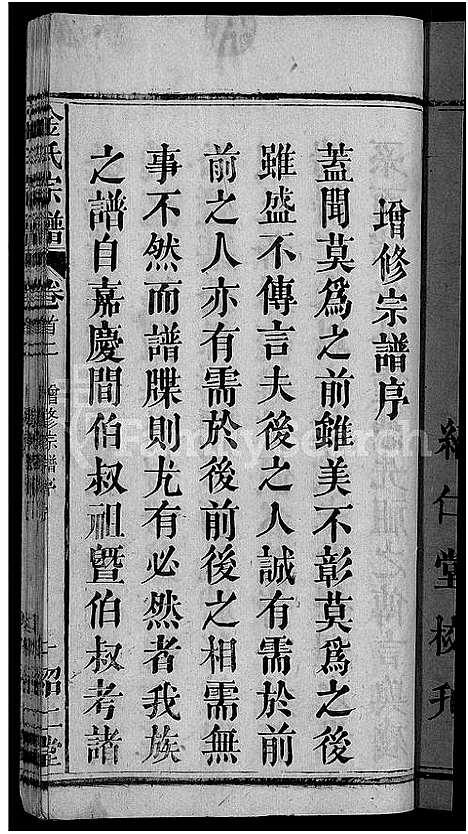 增修宗譜序
蓋聞莫為之前雖美不彰莫為之後
雖盛不傳言夫後之人誠有需於前
前之人亦有需於後前後之相需無
事不然而譜牒則尤有必然者我族
之譜自嘉慶間伯叔祖暨伯叔考諸
金氏宗譜 卷首二 增修宗譜序
FamilySearch